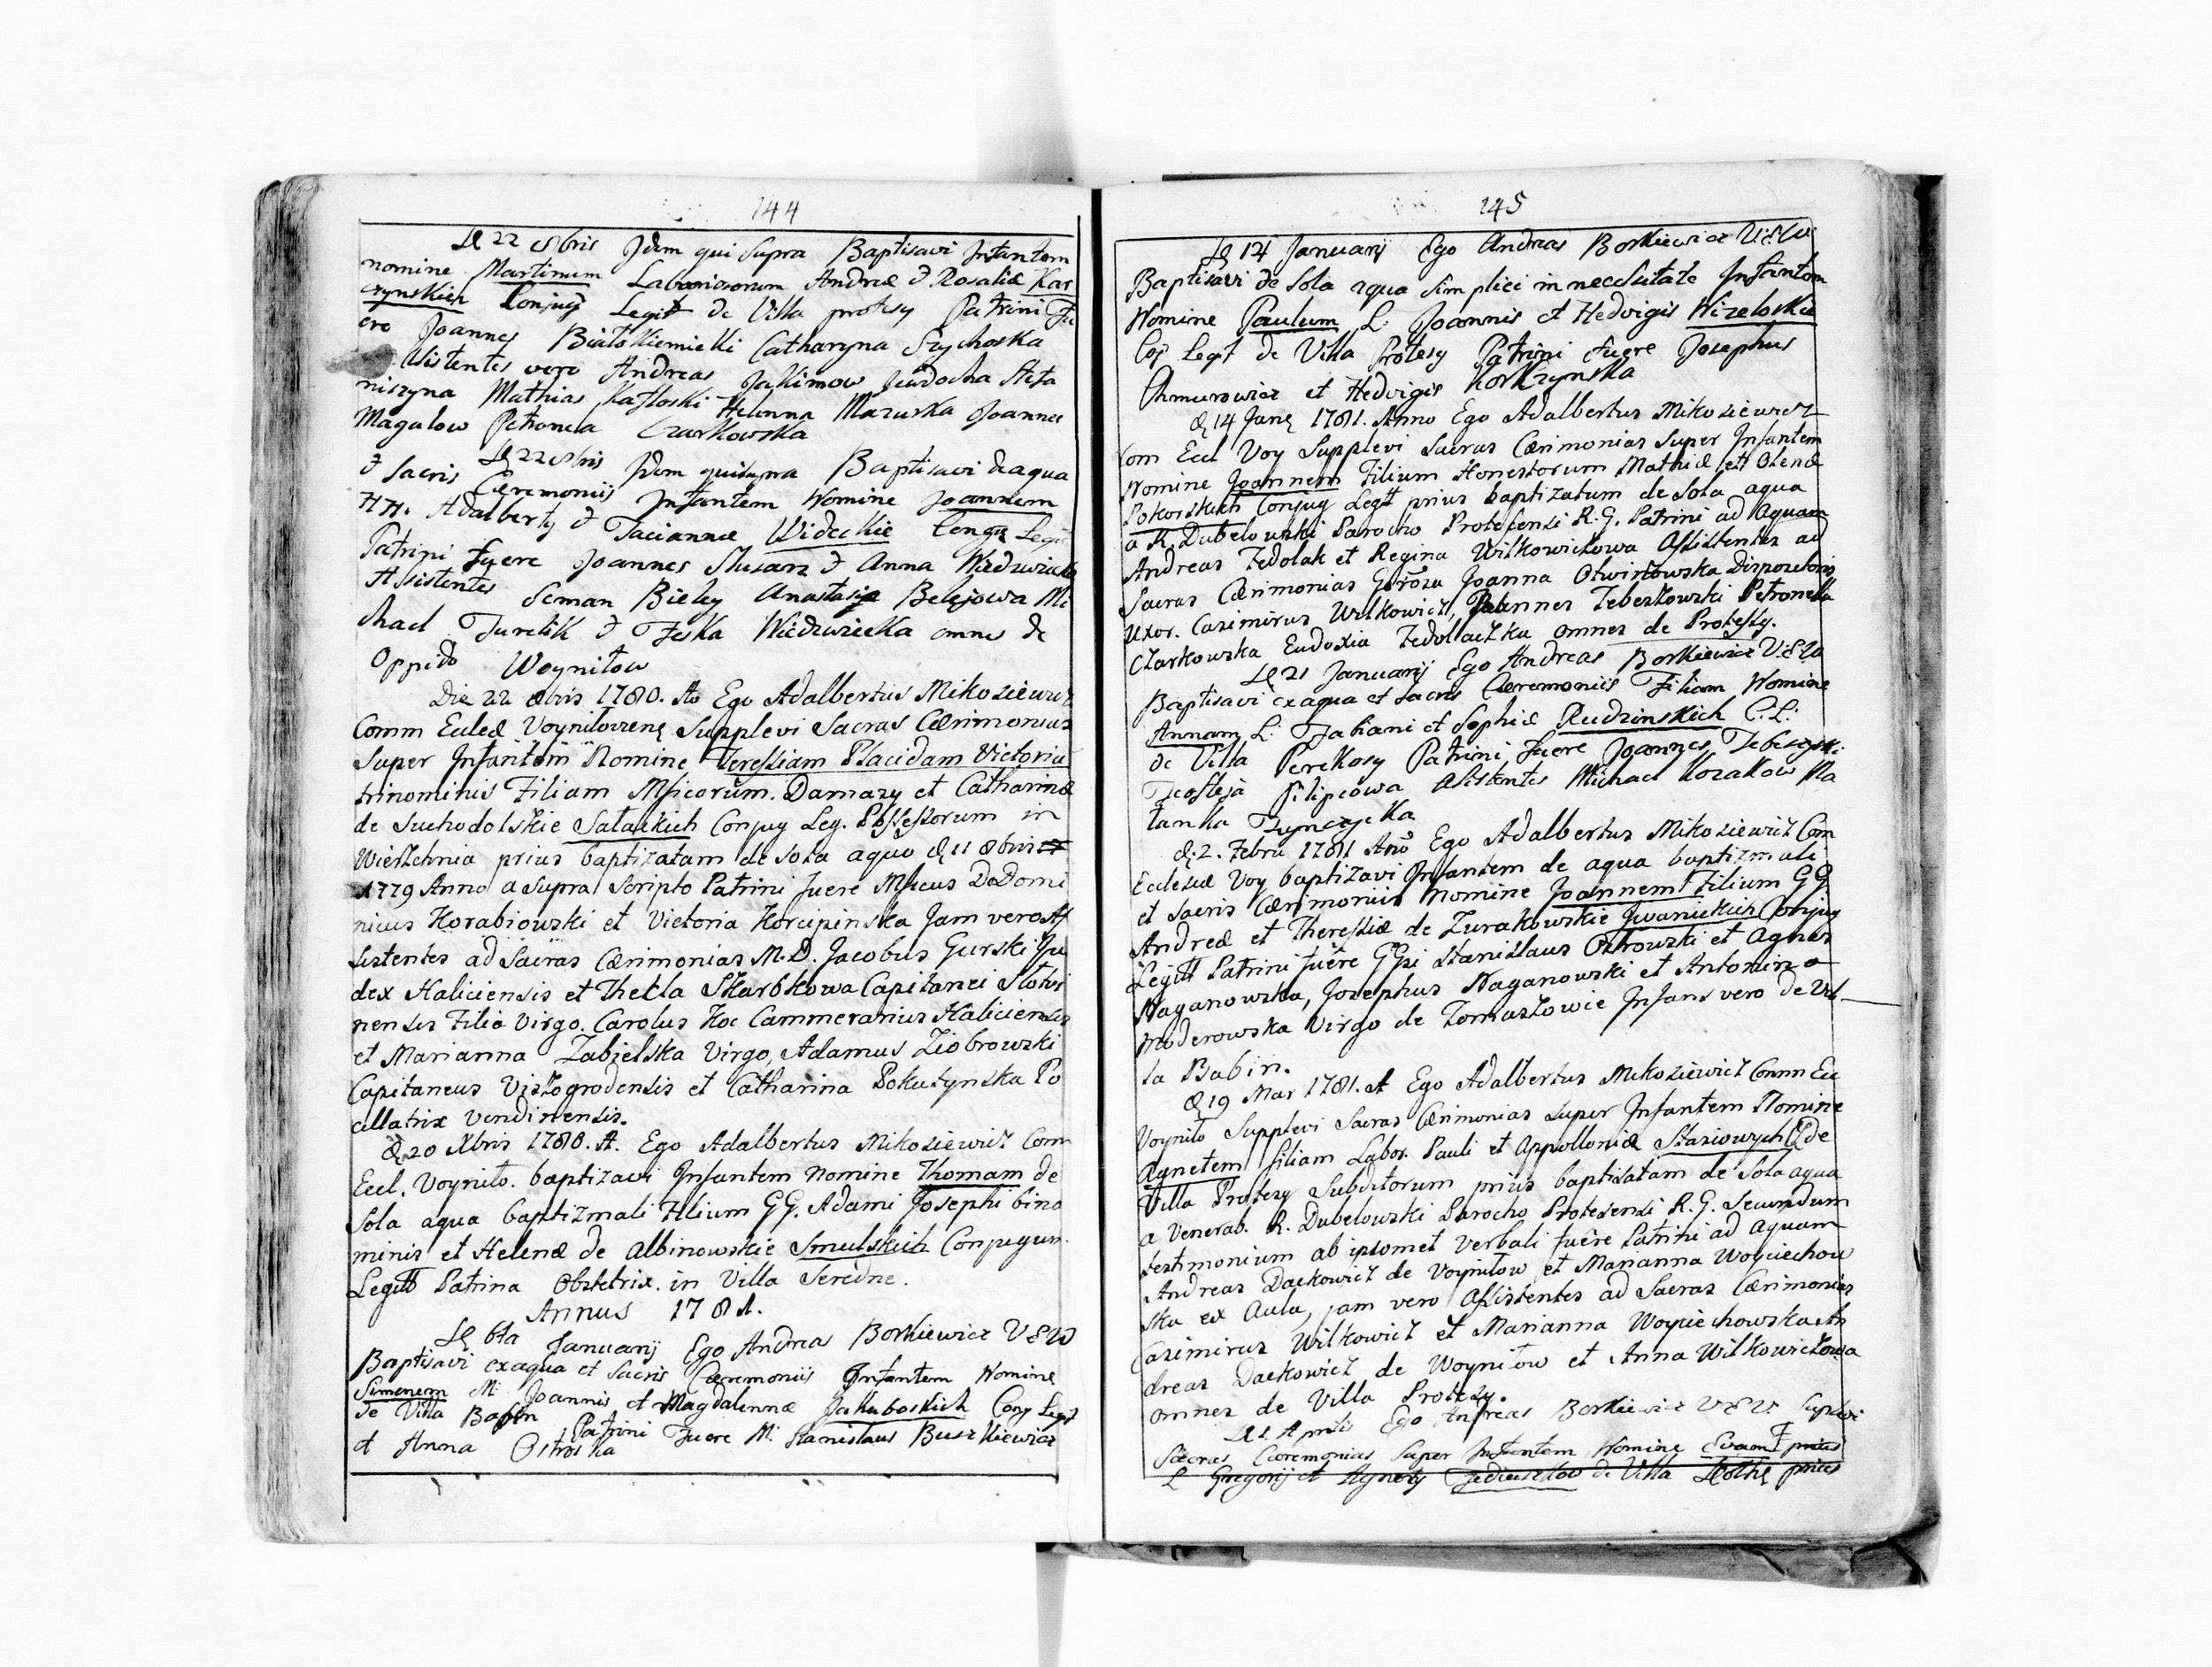 144
D 22 8bris Jdem qui Supra Baptisavi Infantem
nomine Martinum Laboriosorum Andreæ & Rosaliæ Kar
czynskich Conjug Legit de Villa protesy Patrini Fu
ere Joannes Białokiemicki Catharyna Szychoska
Asistentes vero Andreas Jakimow Jewdocha Steta
niszyna Mathias Kasłoski Helenna Mazurska Joannes
Magalow Petronela Czarkowska
D 22 8bris Jdem quisupra Baptisavi deaqua
& Sacris Cæremoniis Infantem Nomine Joannem
HH. Adalberty & Tacianna Wideckie Congg Legit
Patrini Fuere Joannes Slusarz & Anna Wiedzwiecka
Asistentes Seman Bieley Anastasija Belejowa Mi
chael Turelik & Feska Wiedzwiecka omnes de
Oppido Woyniłow
Die 22 8bris 1780. Ao Ego Adalbertus Mikosiewicz
Comm Eccleæ Voyniłoviens Supplevi Sacras Cærimonias
Super Infantem Nomine Teressiam Placidam Victoria
trinominis Filiam Msicorum. Damazy et Catharinæ
de Suchodolskie Sałackich Conjug Leg. Possessorum in
Wierzchnia prius baptizatam de sola aqua d 11 8bris
1779 Anno a Supra Scripto Patrini fuere Mscus D Domi
nicus Korabiowski et Victoria Korcipinska Jam vero As
sistentes ad Sacras Cærimonias M.D. Jacobus Gurski Ju
dex Haliciensis et Thekla Skarbkowa Capitanei Słotwi
nensis Filia Virgo. Carolus Koc Cammerarius Haliciensis
et Marianna Zabielska Virgo, Adamus Ziobrowski
Capitaneus Viszogrodensis et Catharina Pokutynska Po
cillatrix Vendinensis.
D 20 Xbris 1780. A. Ego Adalbertus Mikosiewicz Com
Eccl. Voyniło. baptizavi Infantem nomine Thomam de
Sola aqua baptizmali Filium GG. Adami Josephi bino
minis et Helenæ de Albinowskie Smulskich Conjugum
Legitt Patrina Obstetrix in Villa Seredne.
Annus 1781.
D 6ta Januarij Ego Andreas Borkiewicz V E W
Baptisavi exaqua et Sacris Cæremoniis Infantem Nomine
Simonem M: Joannis et Magdalennæ Jakuboskich Conj Legit
de Villa Babin Patrini Fuere M: Stanislaus Buszkiewicz
et Anna Ostroska
145
D 14 Januarij Ego Andreas Borkiewicz V E W
Baptisavi de Sola aqua Simplici in necessitate Infantem
Nomine Paulum L. Joannis et Hedvigis Wizeloskie
Coj Legit de Villa Protesy Patrini Fuere Josephus
Chmurowicz et Hedvigis Korkzynska
D 14 Jan 1781. Anno Ego Adalbertus Mikosiewicz
Com Eccl Voy Supplevi Sacras Cærimonias Super Infantem
Nomine Joannem Filium Honestorum Mathiæ et Olenæ
Pokorskich Conjug Legitt prius baptizatum de Sola aqua
a R. Dubelowski Parocho Protesensi R.G. Patrini ad Aquam
Andreas Fedolak et Regina Wilkowiczowa Assistentes ad
Sacras Cærimonias Joanna Otwinowska Dispozitoris
Uxor. Casimirus Wilkowicz, Joannes Zebeszowski Petronella
Czarkowska Eudoxia Fedollaczka omnes de Protessy.
D 21 Januarij Ego Andreas Borkiewicz V E W
Baptisavi exaqua et sacris Cæremoniis Filiam Nomine
Annam L: Fabiani et Sophiæ Rudzinskich C: L:
de Villa Perekosy Patrini fuere Joannes
Teofleja Filipcowa Asistentes Michael Kozakow Na
tanka
D. 2. Febru 1781 Ano Ego Adalbertus Mikosiewicz Com
Ecclesiæ Voy baptizavi Infantem de aqua baptizmali
et sacris Cærimoniis Nomine Joannem Filium GG.
Andreæ et Theressiæ de Zurakowskie Jwanickich Conjug
Legitt Patrini fuere GGsi Stanislaus Ostrowski et Agnes
Naganowska, Josephus Naganowski et Antonina
Moderowska Virgo de Tomaszowie Infans vero de Vil
la Babin.
D 19 Mar 1781. A Ego Adalbertus Mikosiewicz Comm Ecc
Voyniło Supplevi Sacras Cærimonias super Infantem Nomine
Agnetem filiam Labor. Pauli et Appolloniæ Stasiowych C de
Villa Protesy Subditorum prius baptisatam de Sola aqua
a Venerab. R. Dubelowski Parocho Protesensi R.G. Secundum
testimonium ab ipsomet verbali fuere Patrini ad Aquam
Andreas Dackowicz de Voyniłow et Marianna Woyciechow
ska ex Aula, jam vero Assistentes ad Sacras Cærimonias
Casimirus Wilkowicz et Marianna Woyciechowska An
dreas Dackowicz de Woyniłow et Anna Wilkowiczowa
omnes de Villa Protezy.
D 1 Aprilis Ego Andreas Borkiewicz V E V Suplevi
Sacras Cæremonias Super Infantem Nomine
L Gregorij et Agnety de Villa prius